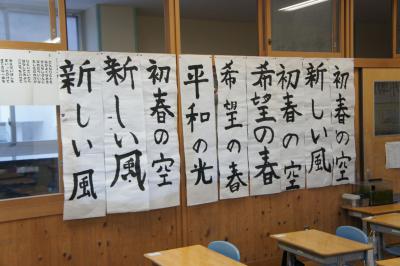 初春の空
新しい風
初春の空
希望の春
希望の春
平和の光
初春の空
新しい風
新しい風